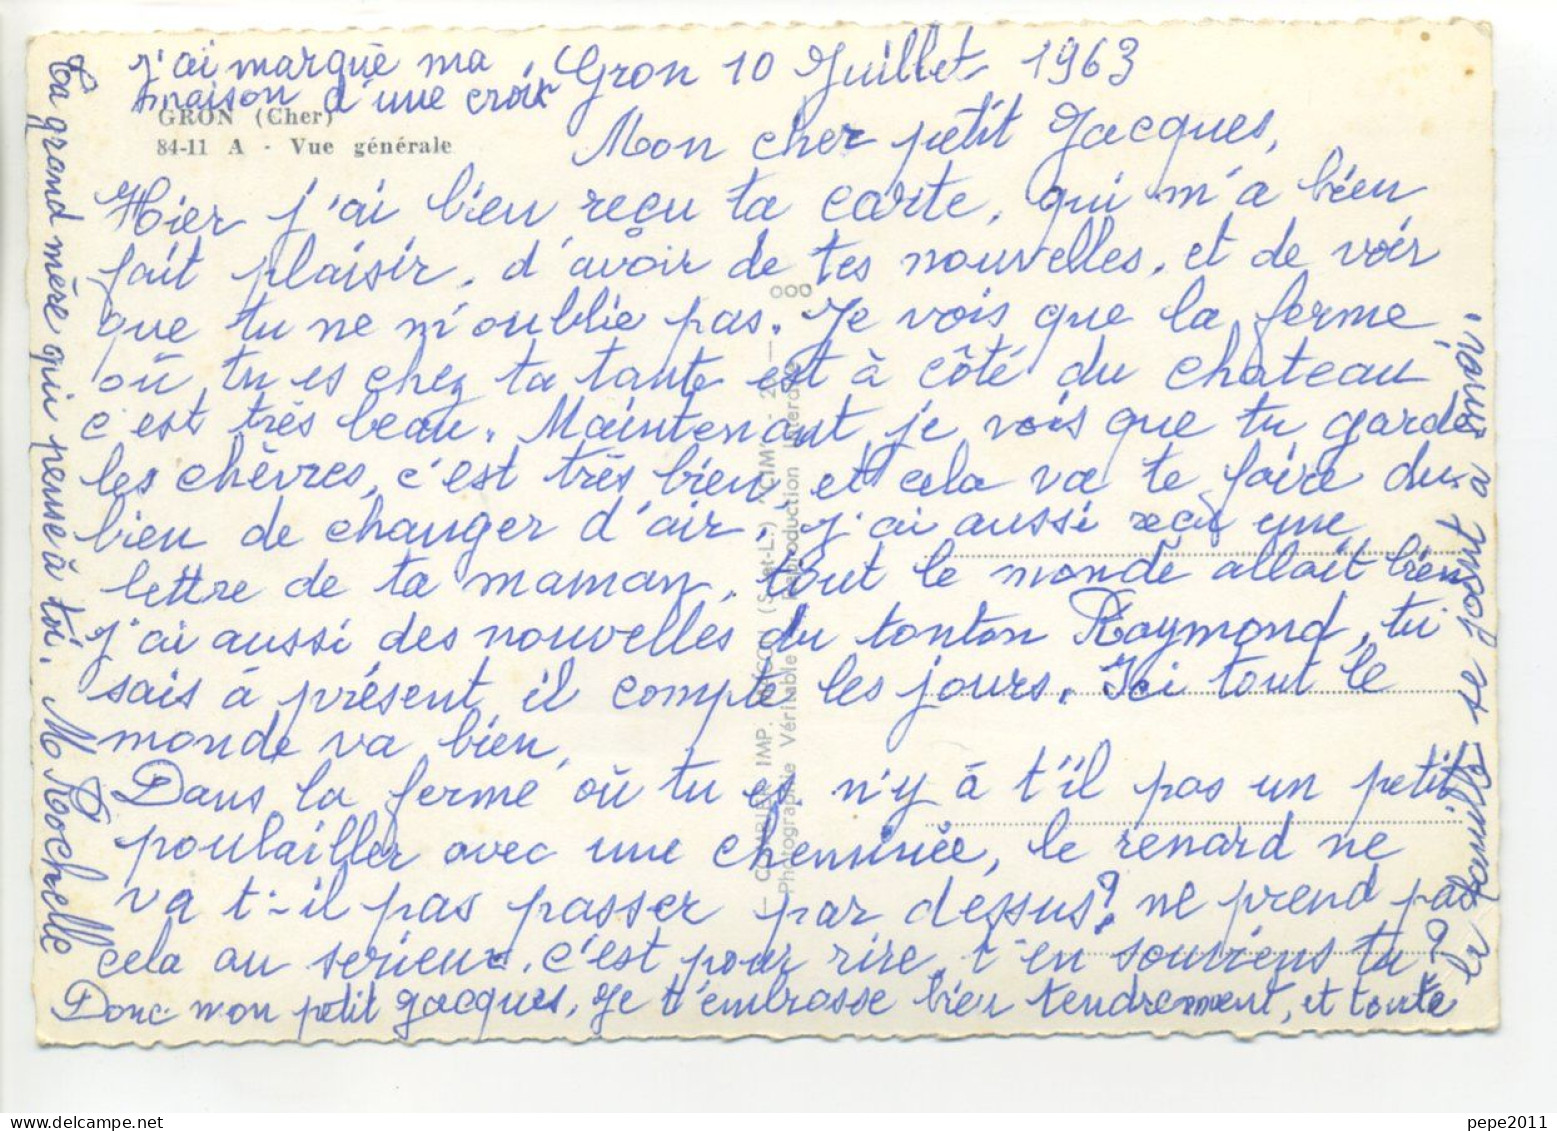 j'ai marqué ma
maison d'une croix
GRON (Cher)
84-11 A - Vue générale
Gron 10 Juillet 1963
Mon cher petit Jacques,
Hier j'ai bien reçu ta carte, qui m'a bien
fait plaisir, d'avoir de tes nouvelles, et de voir
que tu ne m'oublie pas. Je vois que la ferme
où tu es chez ta tante est à côté du chateau
c'est très beau. Maintenant je vois que tu garde
les chèvres, c'est très bien et cela va te faire du
bien de changer d'air. j'ai aussi reçu une
lettre de ta maman, tout le monde allait bien
j'ai aussi des nouvelles du tonton Raymond, tu
sais à présent il compte les jours. Ici tout le
monde va bien,
Dans la ferme où tu es n'y à t'il pas un petit
poulailler avec une cheminée, le renard ne
va t-il pas passer par dessus? ne prend pas
cela au serieux, c'est pour rire, t'en souviens tu?
Donc mon petit Jacques, Je t'embrasse bien tendrement, et toute
la famille se joint a moi.
Ta grand mère qui pense à toi. M Rochelle
COMBIER IMP. MÂCON (S.-et-L.) "CIM"
Photographie Véritable - Reproduction Interdite
pepe2011